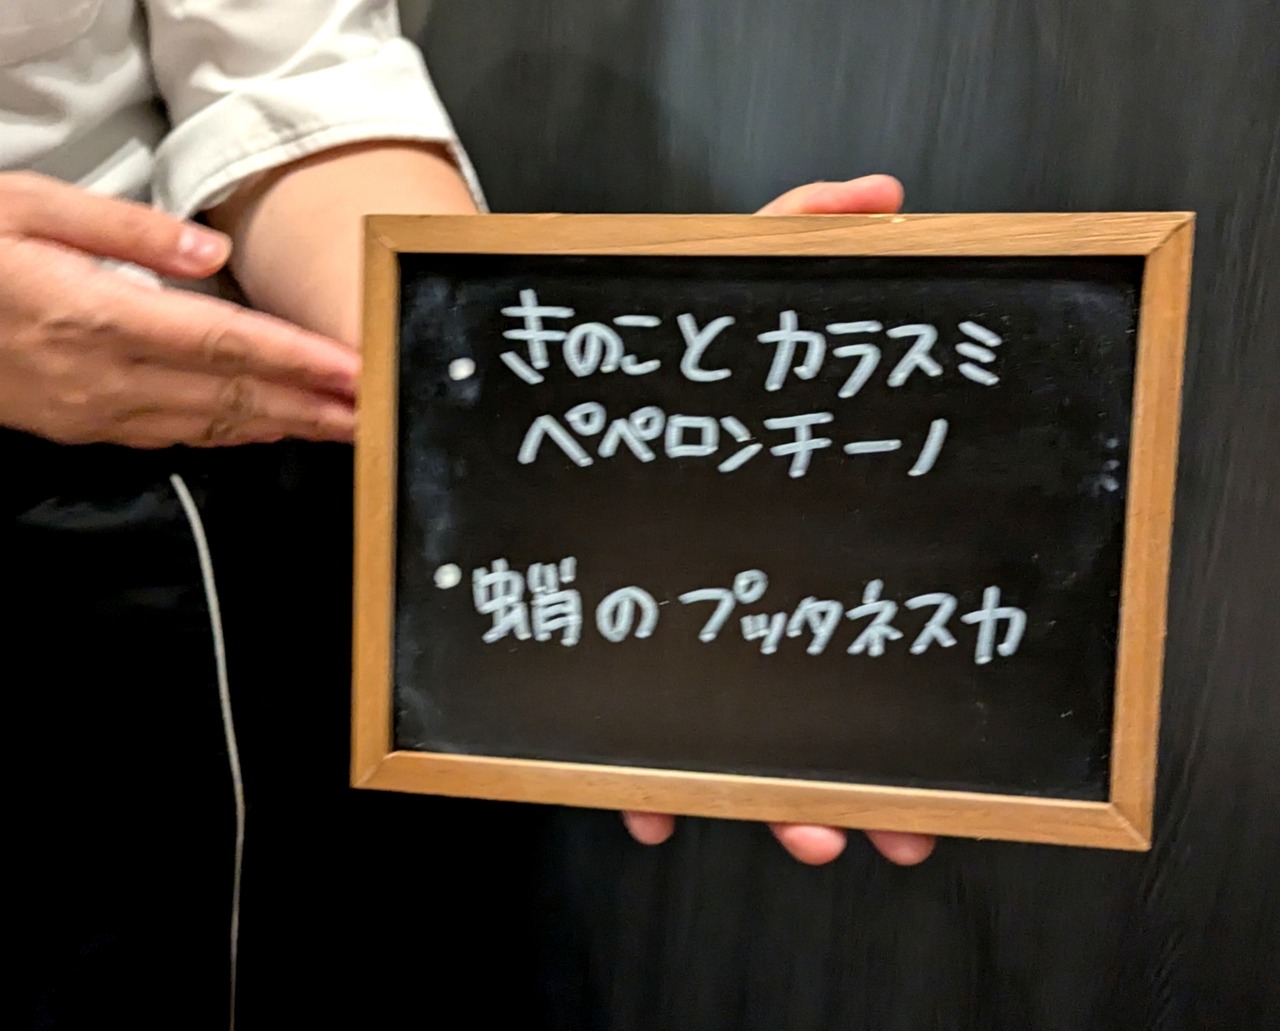 ・きのことカラスミ
ペペロンチーノ
・蛸のプッタネスカ